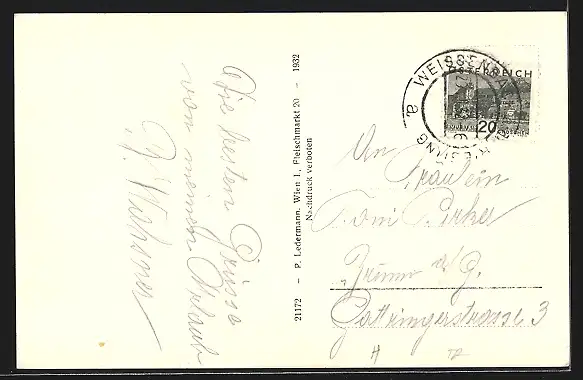 Die besten Grüsse
von meinem Urlaub
21172 – P. Ledermann, Wien I., Fleischmarkt 20 – 1932
Nachdruck verboten
WEISSEN
ÖSTERREICH
20
An
Fräulein
Brunn a/G.
Gattringerstrasse 3